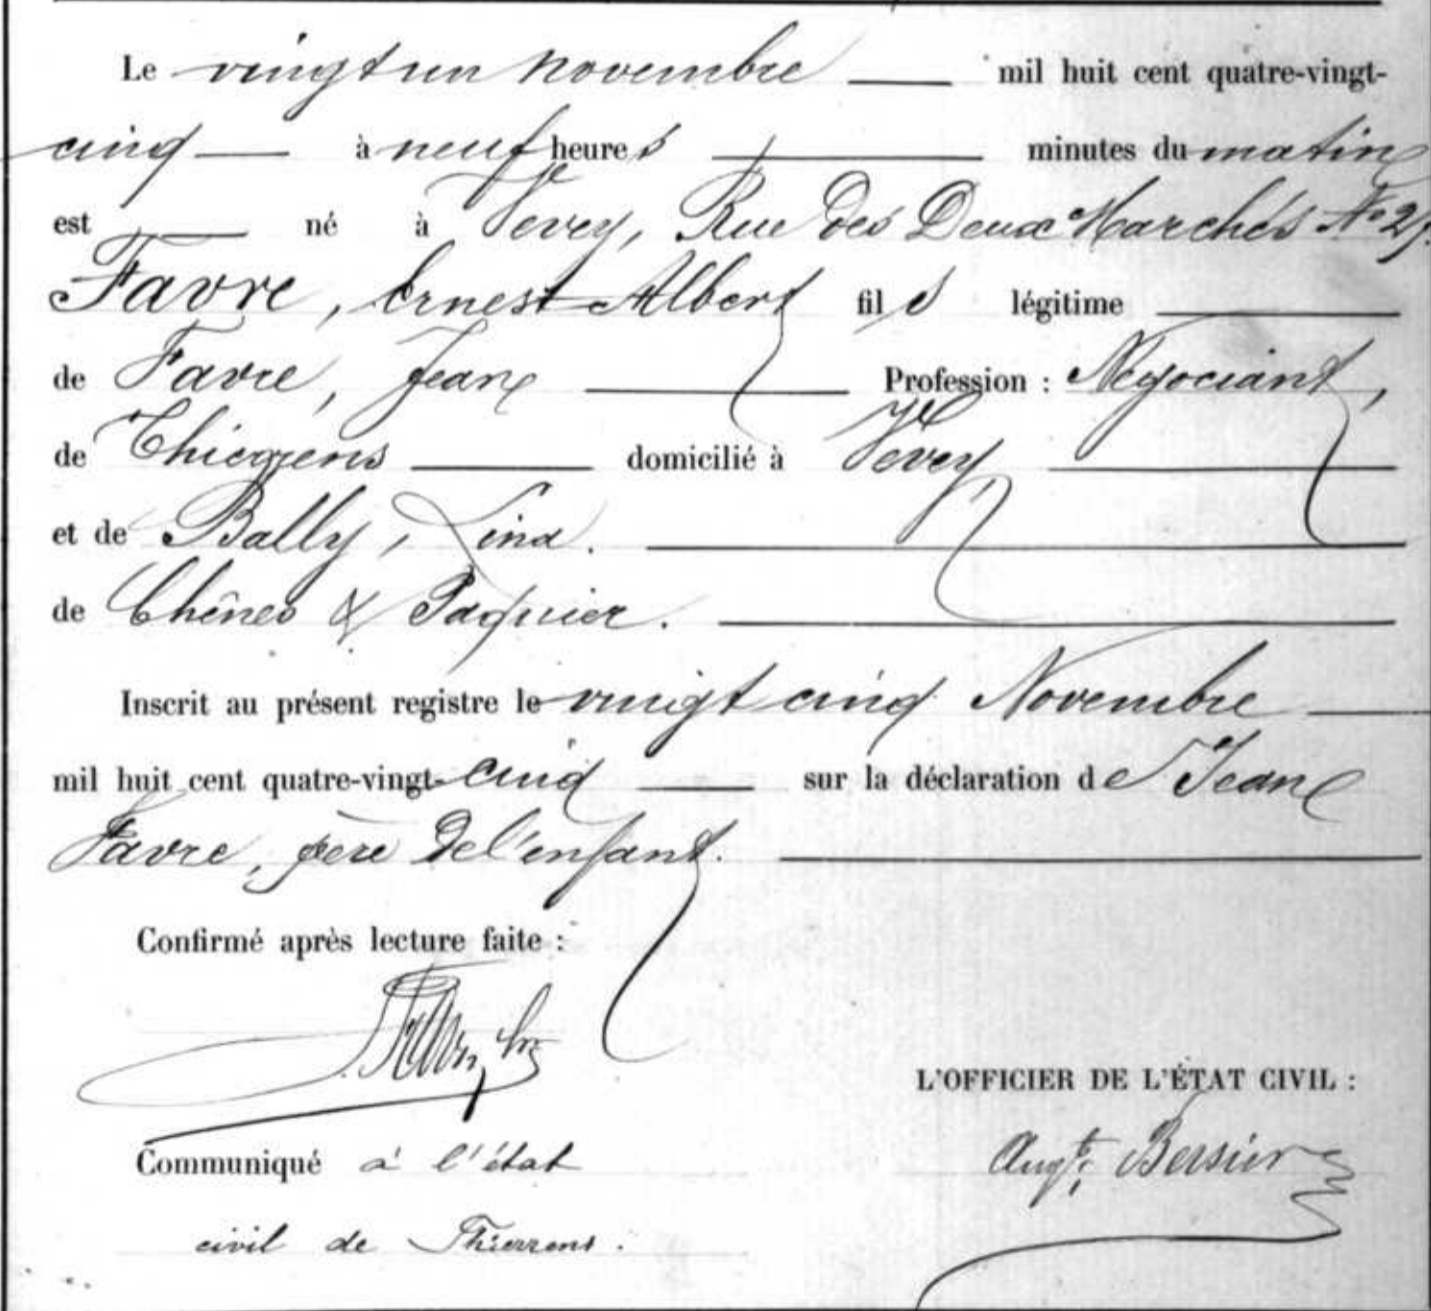 Le vingt un novembre mil huit cent quatre-vingt-
cinq à neuf heures minutes du matin
est né à Vevey, Rue des Deux Marchés No 25.
Favre, Ernest Albert fils légitime
de Favre, Jean Profession : Négociant,
de Thierrens domicilié à Vevey,
et de Bally, Lina.
de Chênes & Paquier.
Inscrit au présent registre le vingt cinq Novembre
mil huit cent quatre-vingt-cinq sur la déclaration de Jean
Favre, père de l'enfant.
Confirmé après lecture faite :
L'OFFICIER DE L'ÉTAT CIVIL :
Communiqué à l'état
Augte. Bersier
civil de Thierrens.